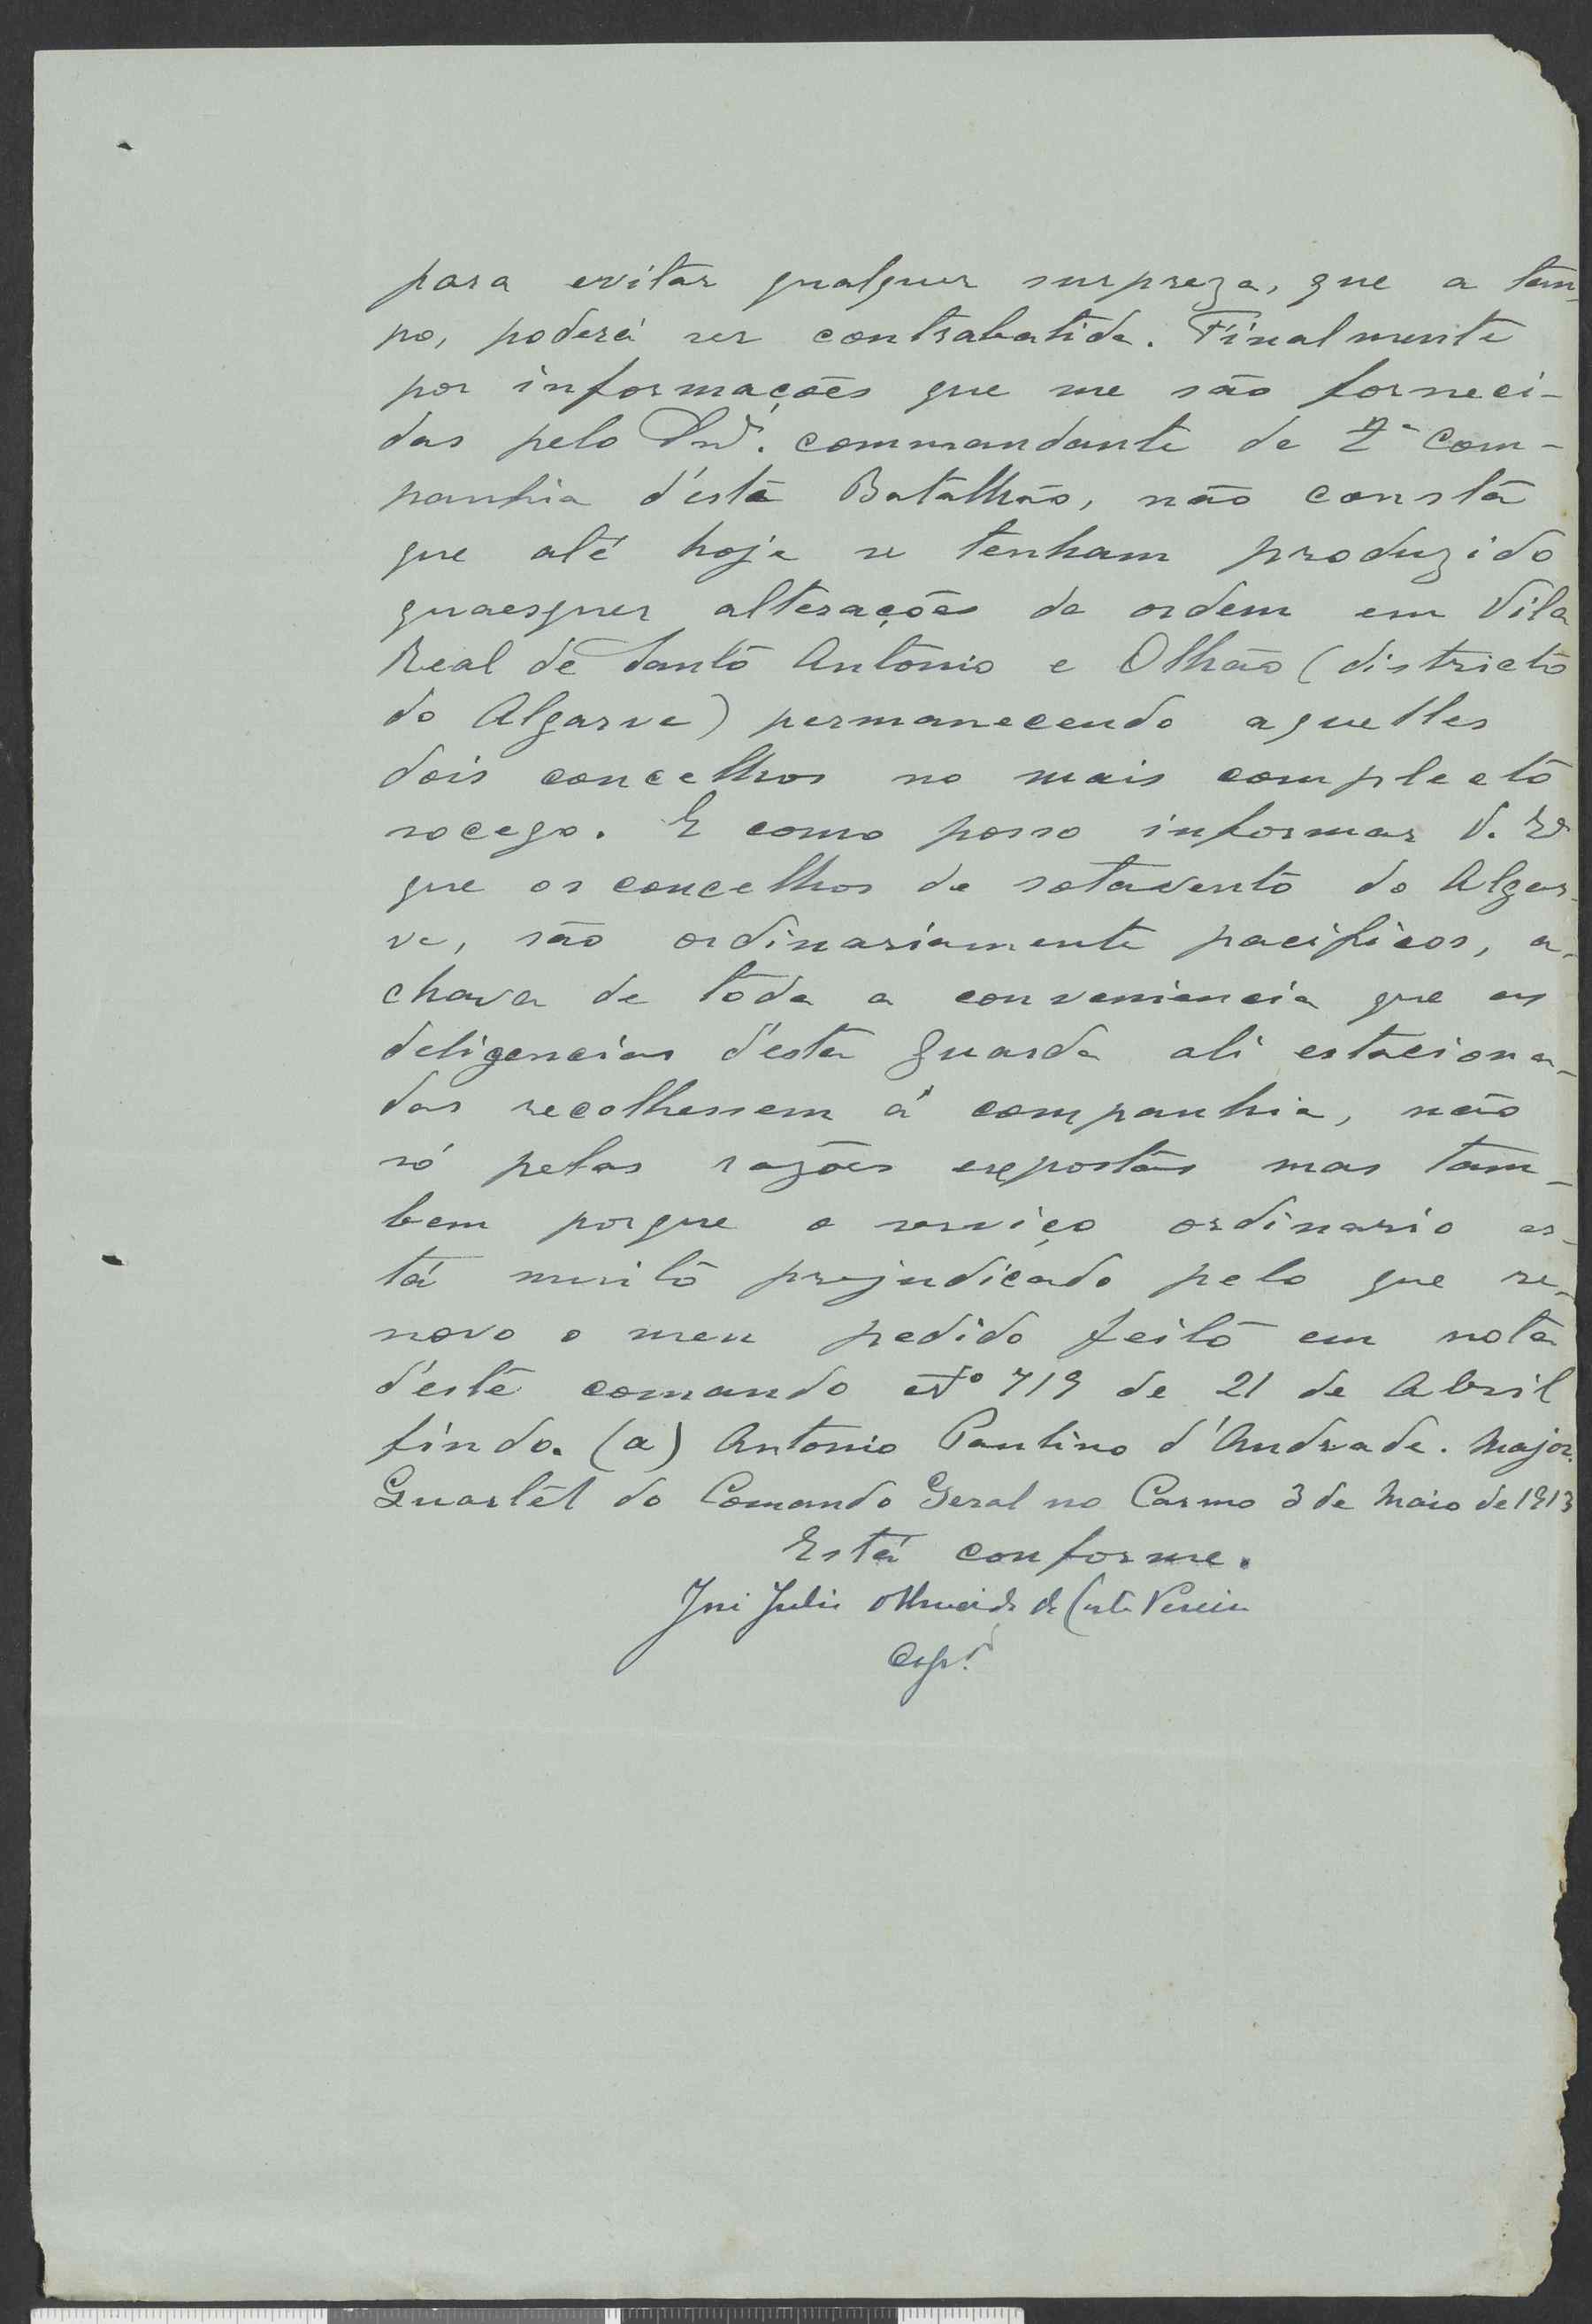 para evitar qualquer surpreza, que a tem-
po, poderá ser contrabatida. Finalmente
por informações que me são forneci-
das pelo Snr. commandante da 2ª Com-
panhia d'este Batalhão, não consta
que até hoje se tenham produzido
quaesquer alterações da ordem em Vila
Real de Santo Antonio e Olhão (districto
do Algarve) permanecendo aquelles
dois concelhos no mais completo
socego. E como posso informar V. Exª
que os concelhos de sotavento do Algar-
ve, são ordinariamente pacificos, a-
chava de toda a conveniencia que as
deligencias d'esta Guarda ali estaciona-
das recolhessem á companhia, não
só pelas razões expostas mas tam-
bem porque o serviço ordinario es-
tá muito prejudicado pelo que re-
novo o meu pedido feito em nota
d'este comando Nº 719 de 21 de Abril
findo. (a) Antonio Paulino d'Andrade. Major.
Quartel do Comando Geral no Carmo 3 de Maio de 1913
Está conforme.
José Julio Almeida da Costa Pereira
Cap.